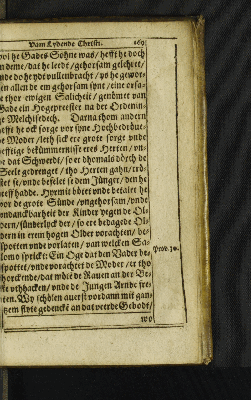 Vam Lydende Christi. 169
wol he Gades Söhne was / hefft he doch
deme / dat he leedt / gehorsam gelehret /
nde do he ys vullenbracht / ys he gewor-
en allen de em gehorsam synt / eine orsa-
ke thor ewigen Salicheit / genömet van
Gade ein Hogepreester na der Ordenin-
ge Melchisedech. Darna thom andern
hefft he ock sorge vor syne Hochbedröue-
de Moder / leth sick ere grote sorge vnde
hefftige bekümmernisse eres Herten / vn-
de dat Schwerdt / so er dhomals dörch de
Seele gedrenget / tho Herten gahn / trö-
stet se / vnde befelet se dem Jünger / den he
leeff hadde. Hyrmit bötet vnde betalet he
vor de grote Sünde / vngehorsam / vnde
vndanckbarheit der Kinder yegen de Öl-
dern / sünderlyck der / so ere bedagede Öl-
dern in erem hogen Older vorachten / be-
spotten vnde vorlaten / van welcken Sa-
lomo sprickt: Ein Oge dat den Vader be-
spottet / vnde vorachtet de Moder / er tho
horckende / dat möte de Rauen an der Be-
ke vthhacken / vnde de Jungen Arnde fre-
ten. Wy schölen auerst vordann mit gan-
tzem flyte gedencken an dat veerde Gebodt /
wo
Prov. 30.